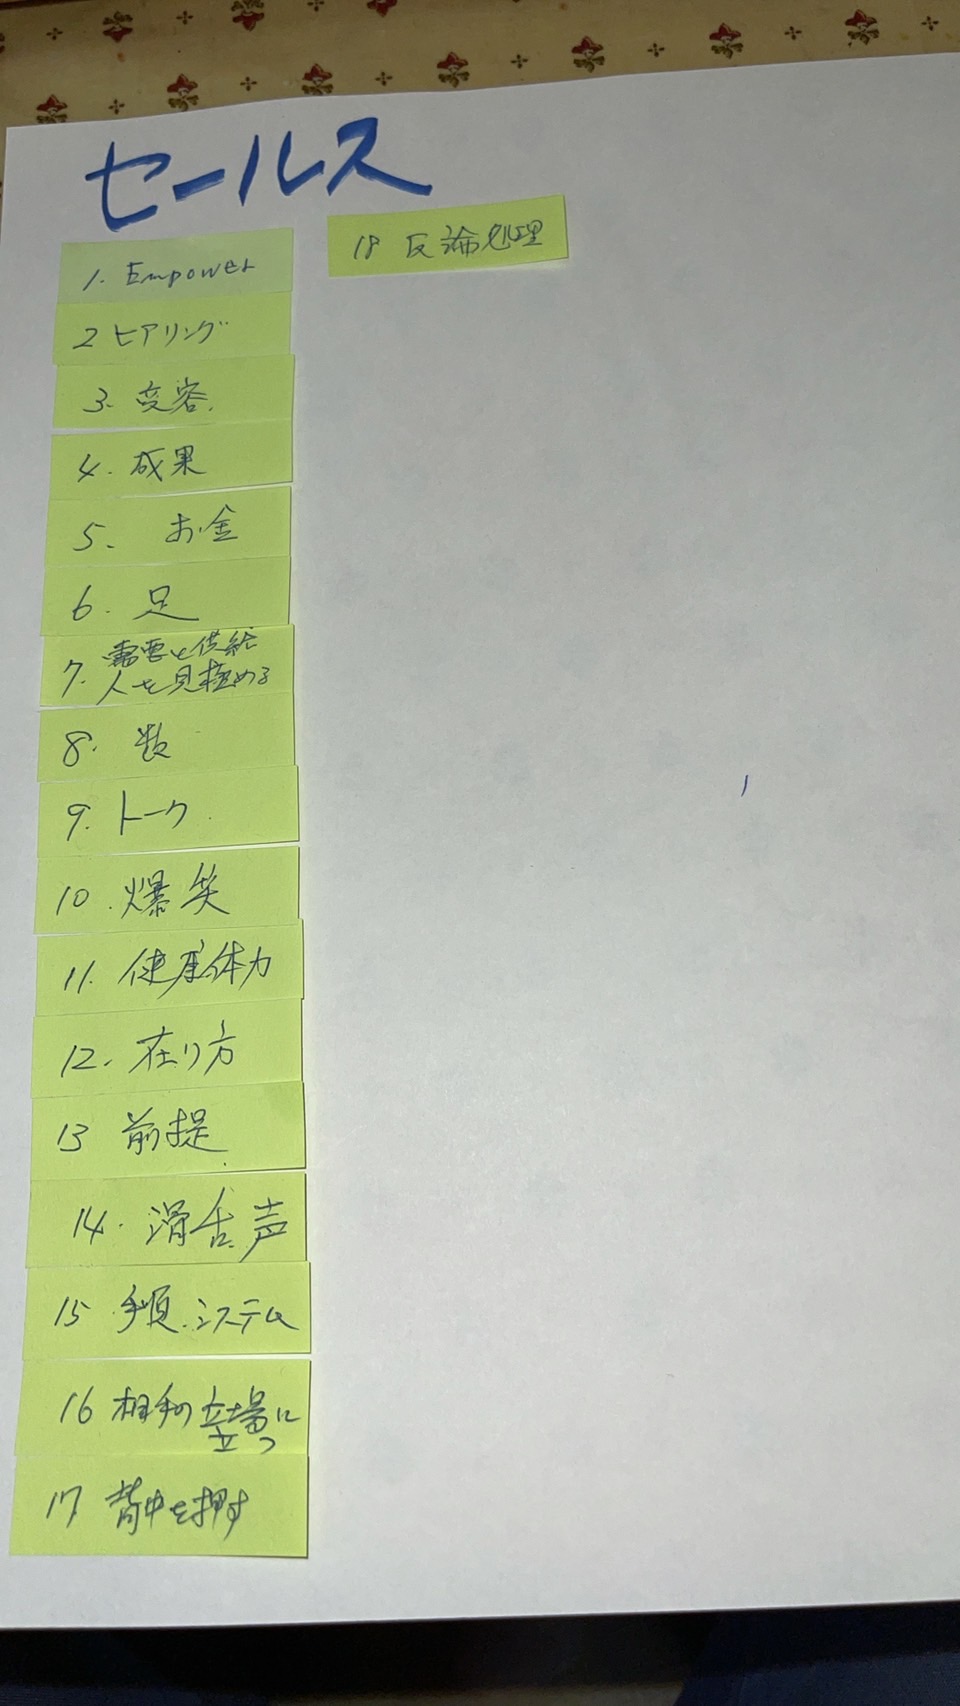 セールス
1. Empower
2 ヒアリング
3. 変容.
4. 成果
5、 お金
6. 足
7. 需要と供給
人を見極める
8. 数
9. トーク
10. 爆笑
11. 健康体力
12. 在り方
13 前提
14. 滑舌.声
15 手順.システム
16 相手の立場に
立つ
17 背中を押す
18 反論処理